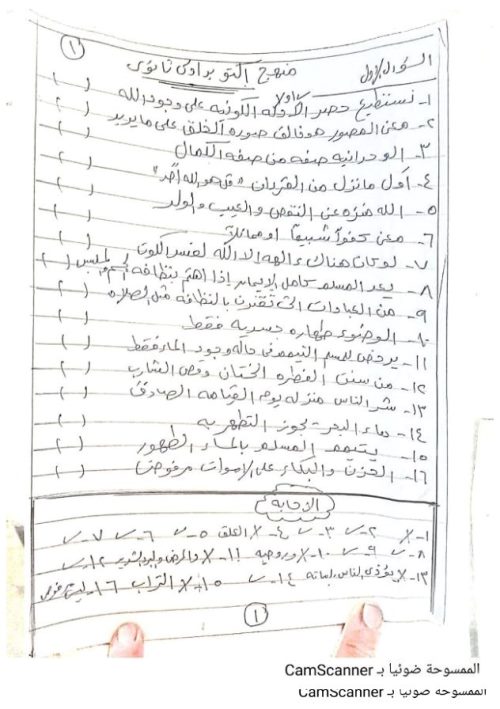 ①
منهج أكتوبر أولى ثانوى
السؤال الأول
١- نستطيع حصر الأدلة الكونية على وجود الله ( )
٢- معنى المصور هو خالق صورة الخلق على ما يريد ( )
٣- الوحدانية صفة من صفة الكمال ( )
٤- أول ما نزل من القرآن "قل هو الله أحد" ( )
٥- الله منزه عن النقص والعيب والولد ( )
٦- معنى كفواً شبيهاً أو مماثلاً ( )
٧- لو كان هناك ءالهة إلا الله لفسد الكون ( )
٨- يعد المسلم كامل الإيمان إذا اهتم بنظافة الملبس ( )
٩- من العبادات التى تقترن بالنظافة مثل الصلاة ( )
١٠- الوضوء طهارة حسية فقط ( )
١١- يرخص للمسلم التيمم فى حالة وجود الماء فقط ( )
١٢- من سنن الفطرة الختان وقص الشارب ( )
١٣- شر الناس منزلة يوم القيامة الصادق ( )
١٤- ماء البحر يجوز التطهر به ( )
١٥- يتيمم المسلم بالماء الطهور ( )
١٦- الحزن والبكاء على الأموات مرفوض ( )
الإجابة
١- X ٢- ✓ ٣- ✓ ٤- X العلق ٥- ✓ ٦- ✓ ٧- ✓
٨- ✓ ٩- ✓ ١٠- X وروحية ١١- X والمرض والبرد الشديد ١٢- ✓
١٣- X يؤذى الناس بلسانه ١٤- ✓ ١٥- X التراب ١٦- ليس مرفوض
①
الممسوحة ضوئيا بـ CamScanner
الممسوحة ضوئيا بـ CamScanner